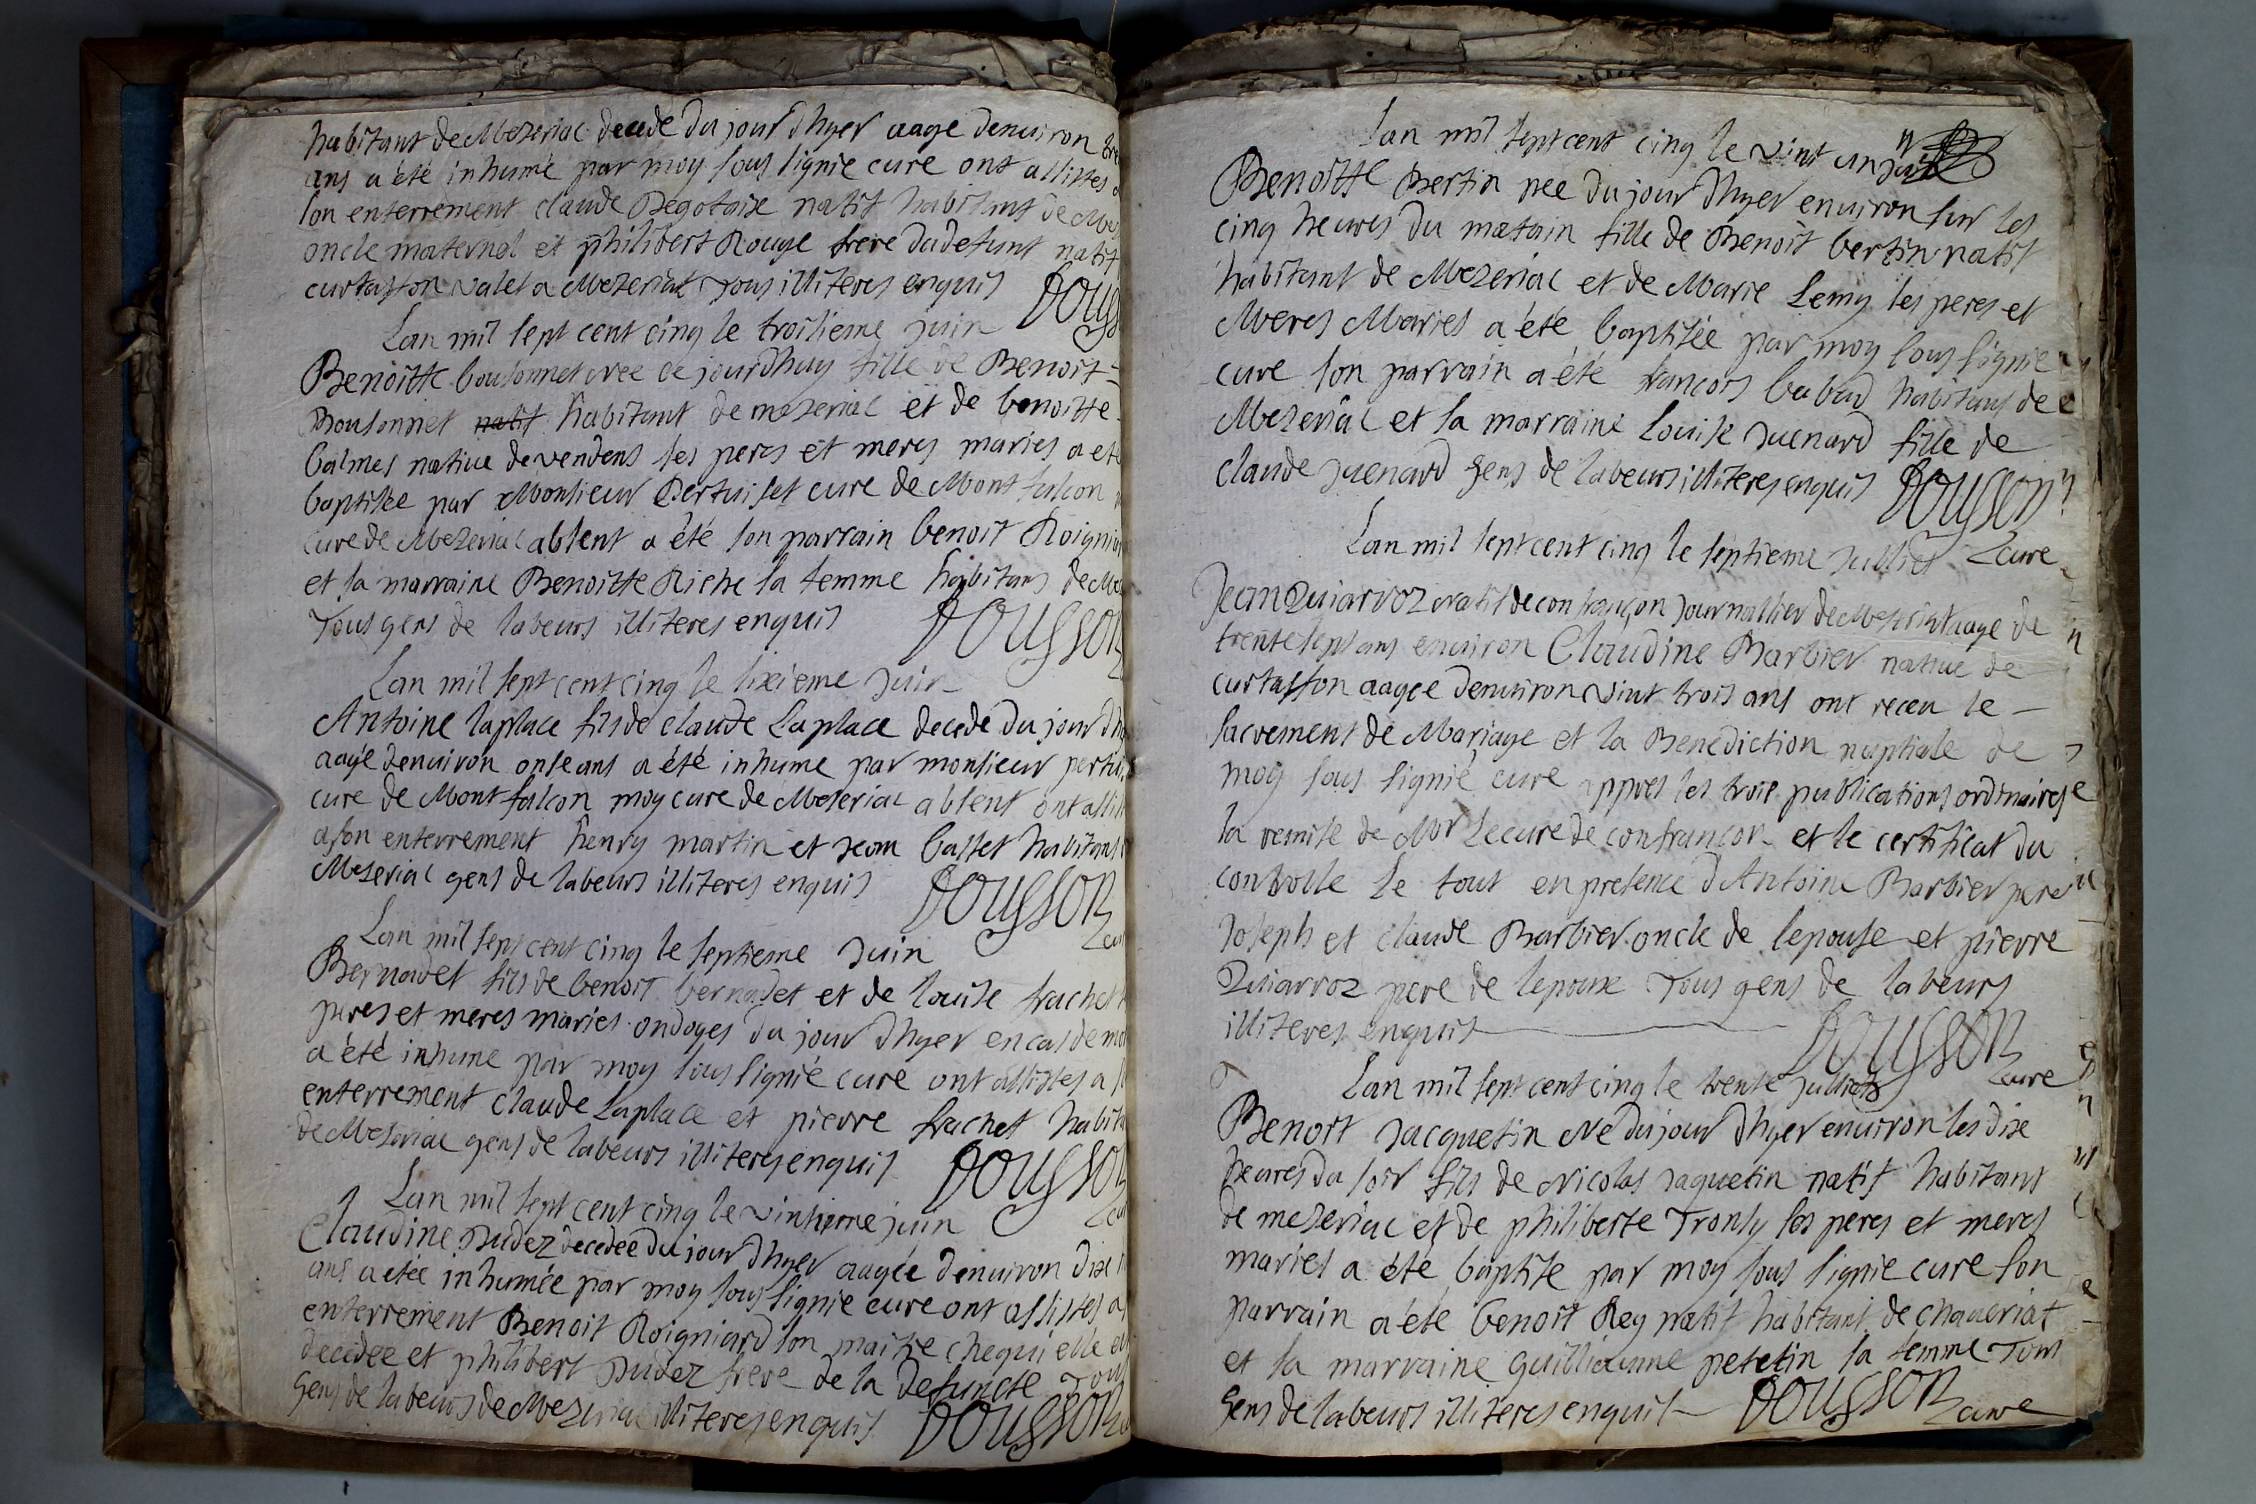 habitant de Mezeriac decede du jour dhyer aage denuiron
ans a été inhumé par moy sous signie cure ont assistes
son enterrement claude Begotaise natif habitant de
oncle maternel et philibert Rouge frere du defunt natif
curtasson valet a Mezeriat Tous illiteres enquis
Lan mil sept cent cinq le troisieme juin
Benoitte bousonnet nee ce jourdhuy fille de Benoit
Bousonnet natif habitant de mezeriac et de benoitte
balmes natiue de vendens ses peres et meres maries a eté
baptisée par Monsieur Pertuiset cure de Mont falcon
cure de Mezeriac absent a été son parrain benoit
et sa marraine Benoitte Riche sa femme habitans de
Tous gens de labeurs illiteres enquis DOUSSON
Lan mil sept cent cinq le sixieme Juin
Antoine laplace fils de claude Laplace decede du jour
aagé denuiron onse ans a été inhume par monsieur
cure de Mont falcon moy cure de Meseriac absent ont
a son enterrement henry martin et Jean bastet habitans
Meseriac gens de labeurs illiteres enquis DOUSSON
Lan mil sept cent cinq le septieme Juin
Bernadet fils de benoit bernadet et de louise frachet
peres et meres maries ondoyes du jour dhyer en cas de
a été inhume par moy sous signié cure ont assistes a
enterrement claude Laplace et pierre frachet
de Meseriac gens de labeurs illiteres enquis DOUSSON
Lan mil sept cent cinq le vintieme juin
Claudine Pudez decedée du jour dhyer aagée denuiron dix
ans a étée inhumée par moy sous signie cure ont assistes a
enterrement Benoit Roigniard son maitre chequi elle
decedee et philibert Pudez frere de la defuncte Tous
gens de labeurs de Mezeriac illiteres enquis DOUSSON
Lan mil sept cent cinq le vint un juin
Benoitte Bertin nee du jour dhyer enuiron sur les
cinq heures du matain fille de Benoit bertin natif
habitant de Mezeriac et de Marie Lemy ses peres et
Meres Maries a été baptisée par moy sous signie
cure son parrain a été francois babad habitant de
Mezeriac et sa marraine Louise Juenard fille de
claude Juenard gens de labeurs illiteres enquis DOUSSON
Lan mil sept cent cinq le septieme Julliet cure
Jean Quiarroz Natif de confrançon Journallier de Meseriat aage de
trente sept ans enuiron Claudine Barbier natiue de
curtasson aagee denuiron vint trois ans ont receu le
sacrement de Mariage et la Benediction nuptiale de
moy sous signié cure appres les trois publications ordinaires
la remise de Mor Le cure de confrancon et le certificat du
controlle Le tout en presence d Antoine Barbier pere
Joseph et claude Barbier oncle de lepouse et pierre
Quiarroz pere de lepoux Tous gens de labeurs
illiteres enquis DOUSSON
Lan mil sept cent cinq le trente Julliet cure
Benoit Jacquetin Né du jour dhyer enuiron les dix
heures du soir fils de Nicolas Jaquetin natif habitant
de mezeriac et de philiberte Tronsy ses peres et meres
maries a été baptise par moy sous signie cure son
parrain a été benoit Rey natif habitant de chaueriat
et sa marraine guilliaume petetin sa femme Tous
gens de labeurs illiteres enquis DOUSSON cure